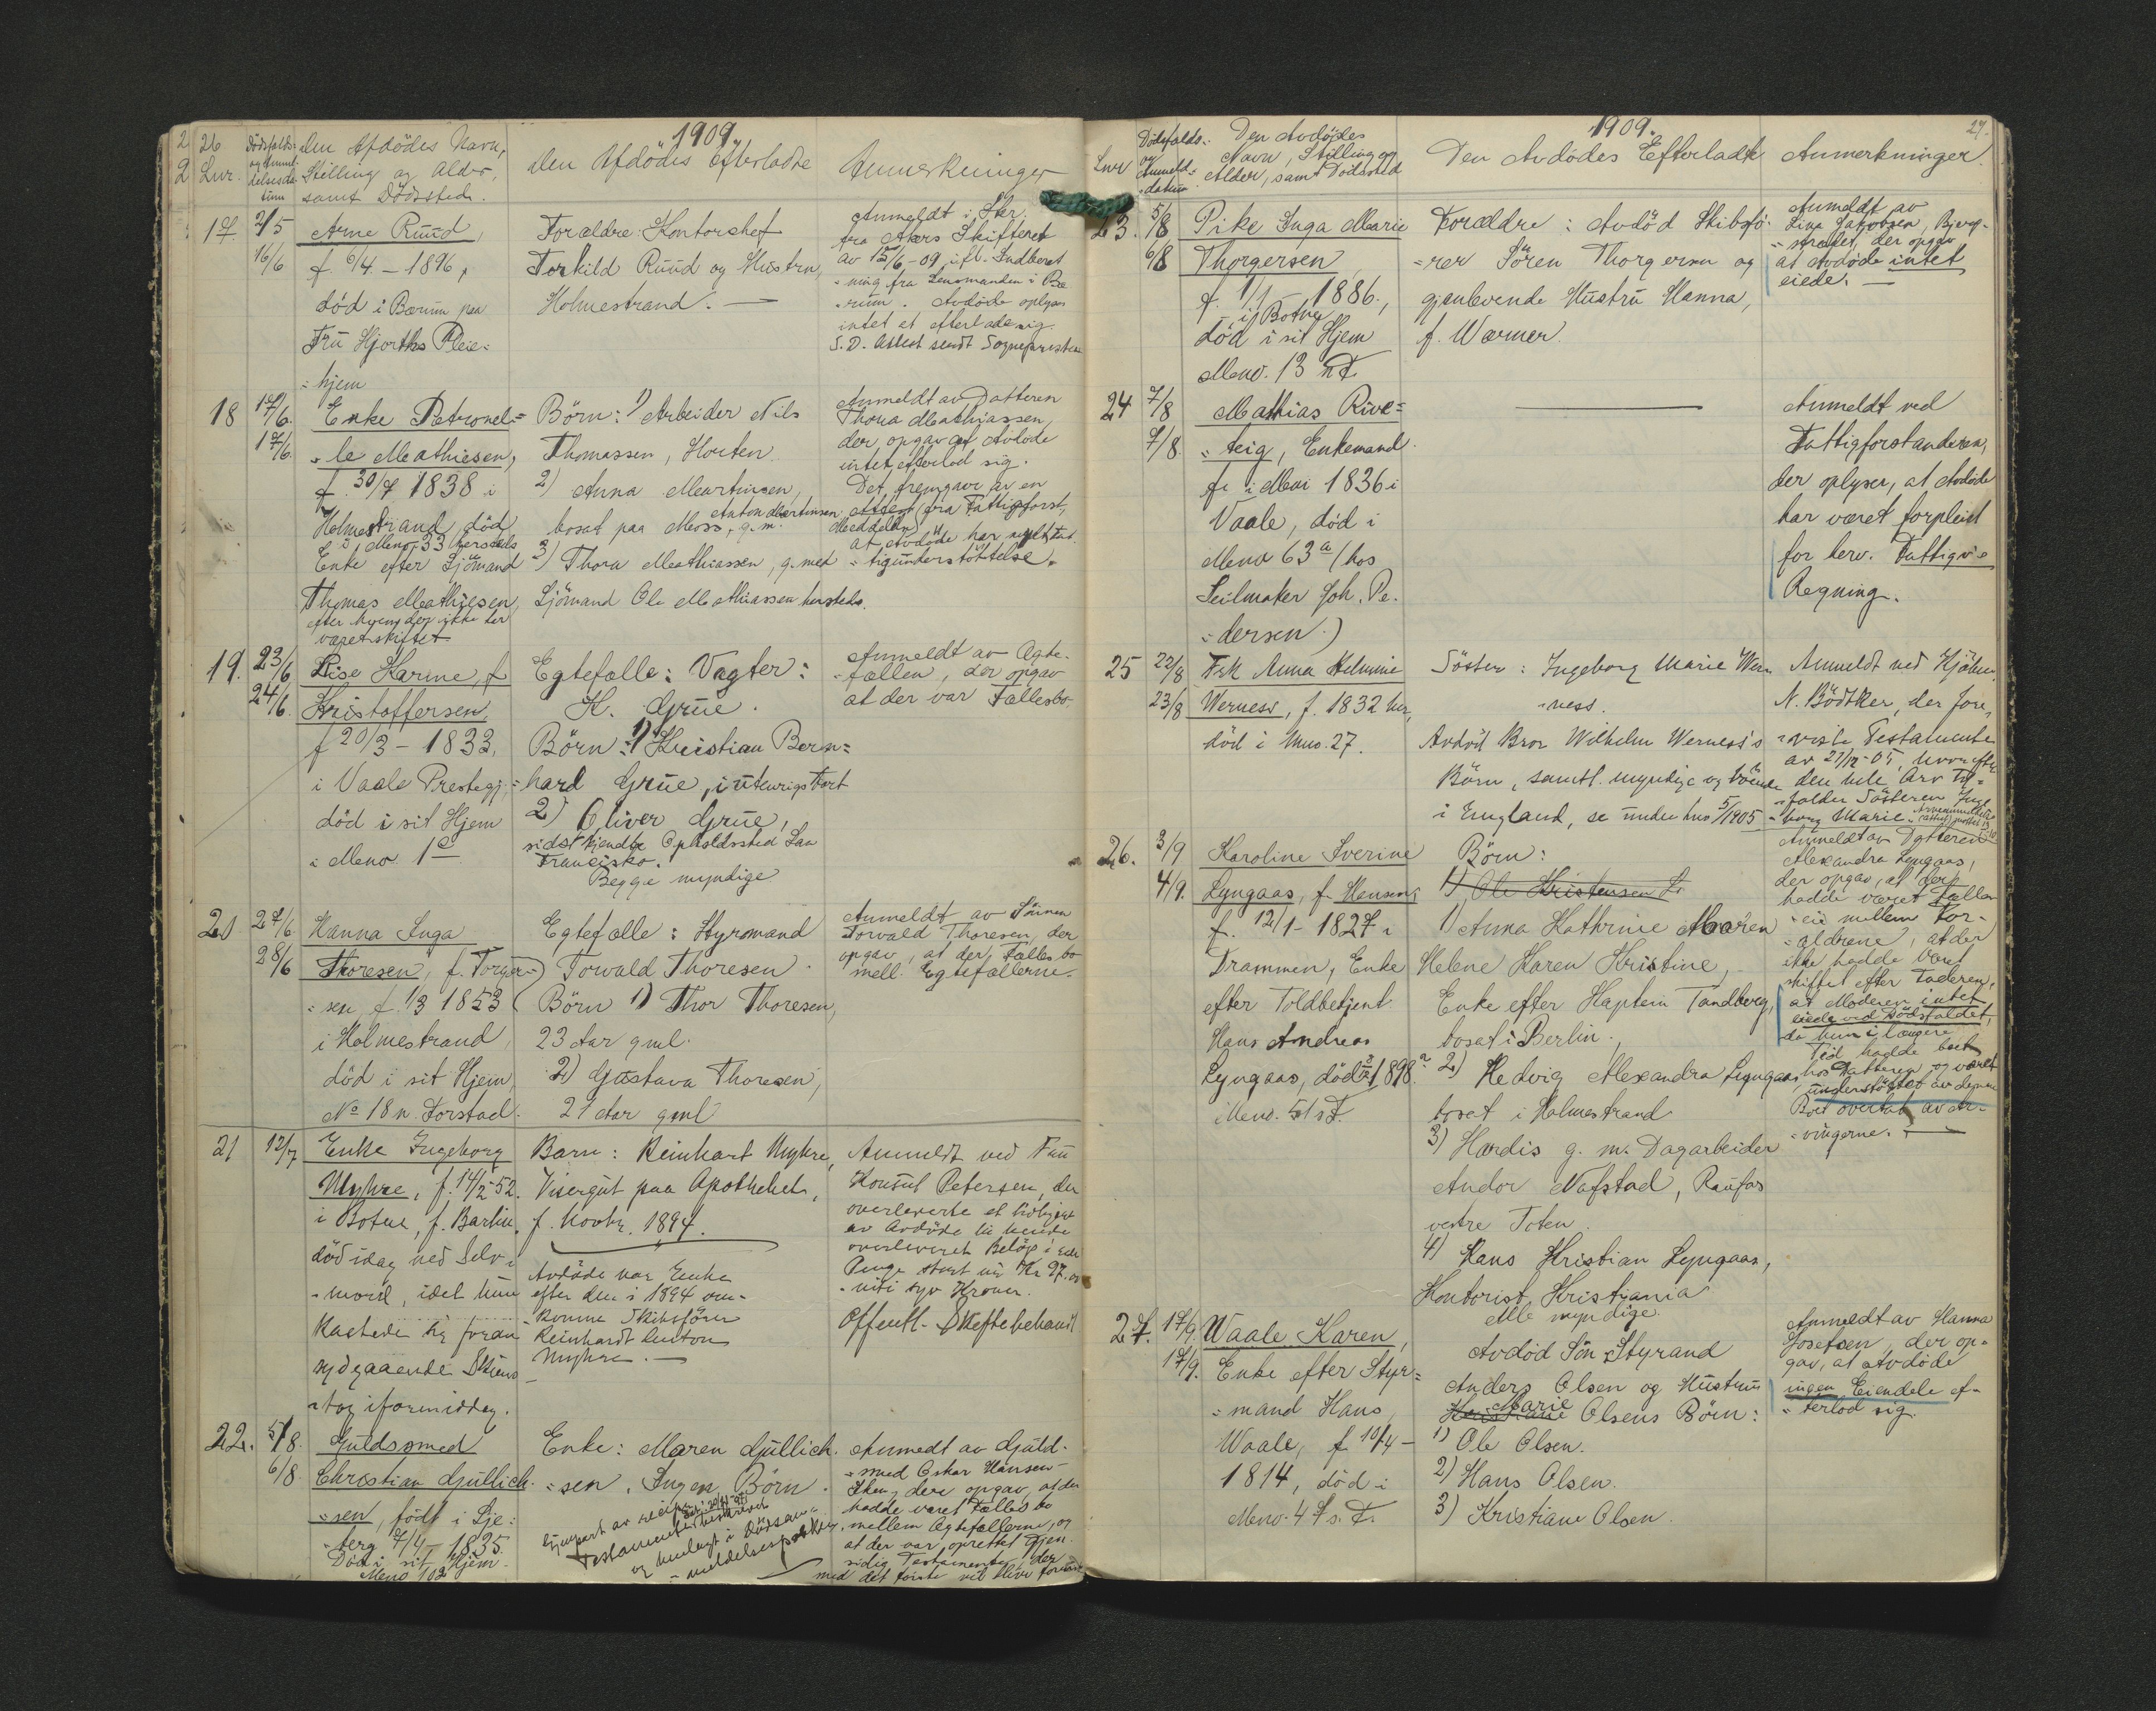 26
1909
Lnr.
Dödsfalds-
og Anmel-
delsesda-
tum
Den Afdödes Navn,
Stilling og Alder,
samt Dödssted.
Den Afdödes Efterladte
Anmerkninger
17
2/5
16/6
Arne Ruud,
f. 6/4 - 1896,
död i Bærum paa
Fru Hjorths Pleie-
-hjem
Forældre: Kontorchef
Torkild Ruud og Hustru,
Holmestrand. —
Anmeldt i Skr.
fra Akers Skifteret
av 15/6-09, ifl. Indberet
-ning fra Lensmanden i Bæ
-rum. Avdöde oplyses
intet at efterlade sig.
S.D. Attest sendt Sognepresten
18
17/6.
17/6.
Enke Petronel-
-le Mathiesen,
f. 30/7 1838 i
Holmestrand, död
i Meno. 33 hersteds
Enke efter Sjömand
Thomas Mathiesen,
efter hvem der ikke her
været skiftet
Börn: 1) Arbeider Nils
Thomassen, Horten.
2) Anna Martinsen,
bosat paa Moss, g.m. Anton Martinsen
3) Thora Mathiassen, g. med
Sjömand Ole Mathiassen hersteds.
Anmeldt av Datteren
Thora Mathiassen,
der opgav at Avdöde
intet efterlod sig.
Det fremgaar av en
Attest fra Fattigforst,
Meddelelse
at Avdöde har nydt Fat
-tigunderstöttelse.
19.
23/6
24/6.
Lise Karine, f
Kristoffersen,
f 20/3 - 1833,
i Vaale Prestegj.
död i sit Hjem
i Meno. 1 c
Egtefælle: Vagter:
H. Grue.
Börn: 1) Kristian Bern-
-hard Grue, i utenrigs Fart
2) Oliver Grue,
sidst kjendte Opholdssted San
Francisko.
Begge myndige
Anmeldt av Egte-
-fællen, der opgav
at der var Fællesbo.
20
27/6
28/6
Hanna Inga
Thoresen, f. Torger-
-sen, f. 1/3 1853
i Holmestrand,
död i sit Hjem
No 18 n. Forstad.
Egtefælle: Styrmand
Torvald Thoresen.
Börn 1) Thor Thoresen,
23 Aar gml.
2) Gustava Thoresen,
21 Aar gml
Anmeldt av Sönnen
Torvald Thoresen, der
opgav, at der Fællesbo
mell. Egtefællerne.
21
12/7
Enke Ingeborg
Myhre, f. 14/2 52.
i Botne, f. Barlin,
död idag ved Selv-
-mord, idet hun
kastede sig foran
sydgaaende Skiens
-tog iformiddag.
Barn: Reinhart Myhre,
Visergut paa Apotheket,
f. Novbr. 1894.
Avdöde var Enke
efter den i 1894 om-
-komne Skibsförer
Reinhardt Anton
Myhre. —
Anmeldt ved Fru
Konsul Petersen, der
overleverte et
av Avdöde til hende
overleveret Belöp i
Penge stort kr. Kr 97.
-niti syv Kroner.
Offentl. Skiftebehandl
22.
5/8.
6/8.
Guldsmed
Christian Gullich-
-sen, födt i Sje-
-berg 7/4 - 1835.
Död i sit Hjem
Meno 102
Enke: Maren Gullich-
-sen, Ingen Börn.
Gjenpart av
Testamentet
og henlagt i Dödsan-
-meldelsespakken
Anmeldt av Guld-
-smed Oskar Hansen-
Skeng der opgav, at der
hadde været Fællesbo
mellem Egtefællerne, og
at der var oprettet Gjen-
sidig Testamente, der
med det förste vil blive
27.
1909.
Lnr
Dödsfalds-
og
Anmeld-
datum
Den Avdödes
Navn, Stilling og
Alder, samt Dödssted
Den Avdödes Efterladte
Anmerkninger
23.
5/8
6/8
Pike Inga Marie
Thorgersen,
f. 1/1 - 1886.,
i Botne
död i sit Hjem
Meno. 13 n F.
Forældre: Avdöd Skibsfö-
-rer Sören Thorgersen og
gjenlevende Hustru Hanna,
f. Wærner.
Anmeldt av
Lina Jakobsen, Bjerg-
-strædet, der opgav
at Avdöde intet
eiede. —
24
7/8
7/8.
Mathias Rive-
-teig, Enkemand.
f. i Mai 1836 i
Vaale, död i
Meno 63 a (hos
Seilmaker Joh. Pe-
-dersen.)
Anmeldt ved
Fattigforstanderen,
der oplyser, at Avdöde
har været forpleiet
for herv. Fattigv.s
Regning.
25
22/8
23/8
Frk Anna Helmine
Werness, f. 1832 her,
död i Mno. 27.
Söster: Ingeborg Marie Wer-
-ness.
Avdöd Bror Wilhelm Werness's
Börn, samtl. myndige og boende
i England, se under lno 5/1905
Anmeldt ved Hjalmar
N. Bödtker, der fore-
-viste Testamente
av 27/12-05, hvorefter
den hele Arv til-
-falder Sösteren Inge
-borg Marie.
26.
3/9
4/9.
Karoline Iverine
Lyngaas, f. Hansen,
f. 12/1- 1827 i
Drammen, Enke
efter Toldbetjent
Hans Andreas
Lyngaas, död 1898.
i Meno. 51 s F.
Börn:
1) Ole Kristensen L.
1) Anna Kathrine Maren
Helene Karen Kristine,
Enke efter Kaptein Tandberg,
bosat i Berlin.,
2) Hedvig Alexandra Lyngaas,
bosat i Holmestrand
3) Hardis g. m. Dagarbeider
Andor Nafstad, Raufos
vestre Toten.
4) Hans Kristian Lyngaas,
Kontorist, Kristiania
Alle myndige.
Anmeldt av Datteren
Alexandra Lyngaas,
der opgav, at der
hadde været Fælles
-eie mellem For-
-ældrene, at der
ikke hadde været
skiftet efter Faderen,
at Moderen intet
eiede ved Dödsfaldet,
da hun i længere
Tid hadde boet
hos Datteren og været
understöttet av denne
Boet overtat av Ar-
-vingerne. —
27.
17/9.
17/9.
Waale Karen,
Enke efter Styr-
-mand Hans
Waale, f 10/4 -
1814, död i
Meno. 47 s. F.
Avdöd Sön Styrmand
Anders Olsen og Hustru
Marie
Olsens Börn:
1) Ole Olsen.
2) Hans Olsen.
3) Kristiane Olsen.
Anmeldt av Hanna
Josefsen, der op-
gav, at Avdöde
ingen Eiendele ef-
-terlod sig.